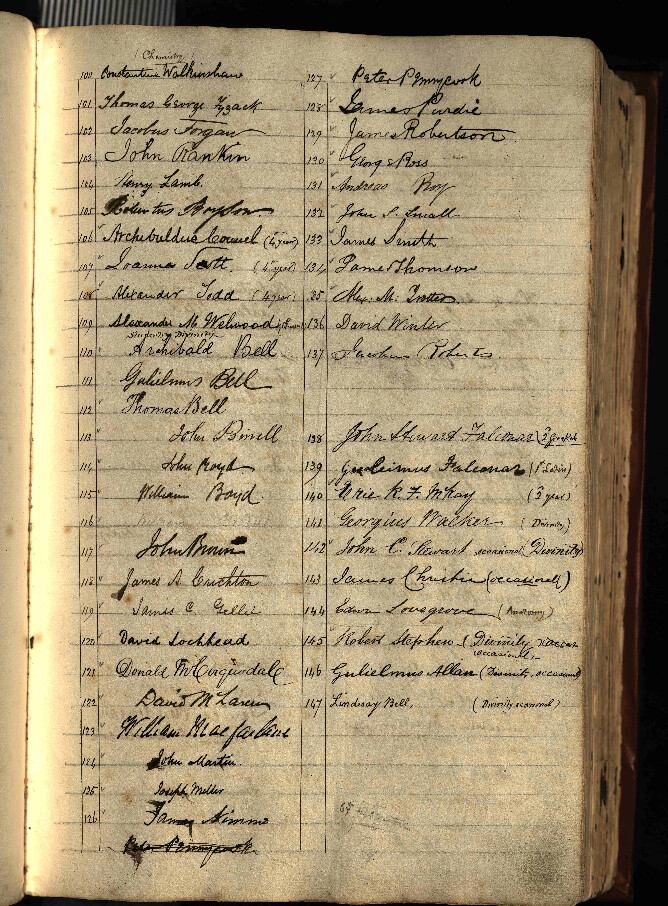 (Chemistry)
100 Constantine Walkinshaw
101 Thomas George Tyzack
102 Jacobus Forgan
103 John Rankin
104 Henry Lamb.
105 Robertus
106 Archibaldus Counsel (4 year)
107 Joanna Scott. (4 year)
108 Alexander Todd (4 year)
109 Alexander M. Welwood
Studying Divinity
110 Archibald Bell
111 Gulielmus Bell
112 Thomas Bell
113 John Birrell
114 John Boyd
115 William Boyd.
116
117 John Brown
118 James A Crichton
119 James C. Gellie
120 David Lochhead
121 Donald McCorquodale
122 David McLaren
123 William Macfarlane
124 John Martin.
125 Joseph Miller
126 James Nimmo
Peter Pennycook
127 Peter Pennycook
128 James Purdie
129 James Robertson.
130 George Ross
131 Andreas Roy
132 John S. Small
133 James Smith
134 James Thomson
135 Alex. M. Trotter
136 David Winter
137 Jacobus Roberts
138 John Stewart Falconar
139 Gulielmus Falconar (1st Latin)
140 Urie K. F. McKay (3 year)
141 Georgius Walker (Divinity)
142 John C. Stewart occasional (Divinity)
143 James Christie (occasionally)
144 Edwin Lovegrove (Anatomy)
145 Robert Stephen (Divinity
occasional)
146 Gulielmus Allan (Divinity, occasional)
147 Lindsay Bell, (Divinity occasional)